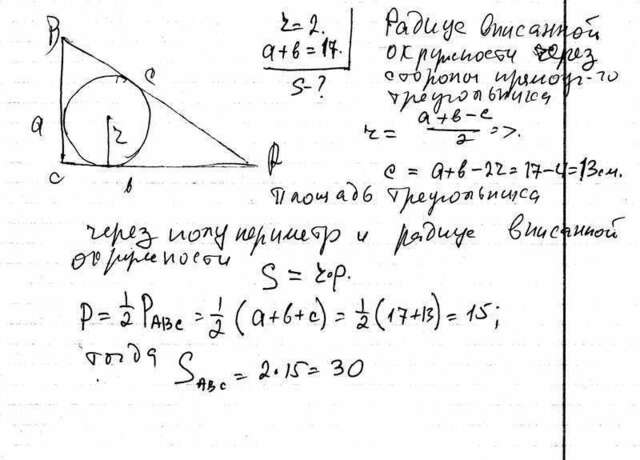 B
a
C
b
A
c
r
r = 2.
a+b = 17.
S - ?
Радиус вписанной
окружности через
стороны прямоуг-го
треугольника
r = (a+b-c)/2 =>.
c = a+b-2r = 17-4 = 13 см.
Площадь треугольника
через полупериметр и радиус вписанной
окружности
S = r·p.
P = 1/2 P_ABC = 1/2 (a+b+c) = 1/2 (17+13) = 15;
тогда
S_ABC = 2·15 = 30